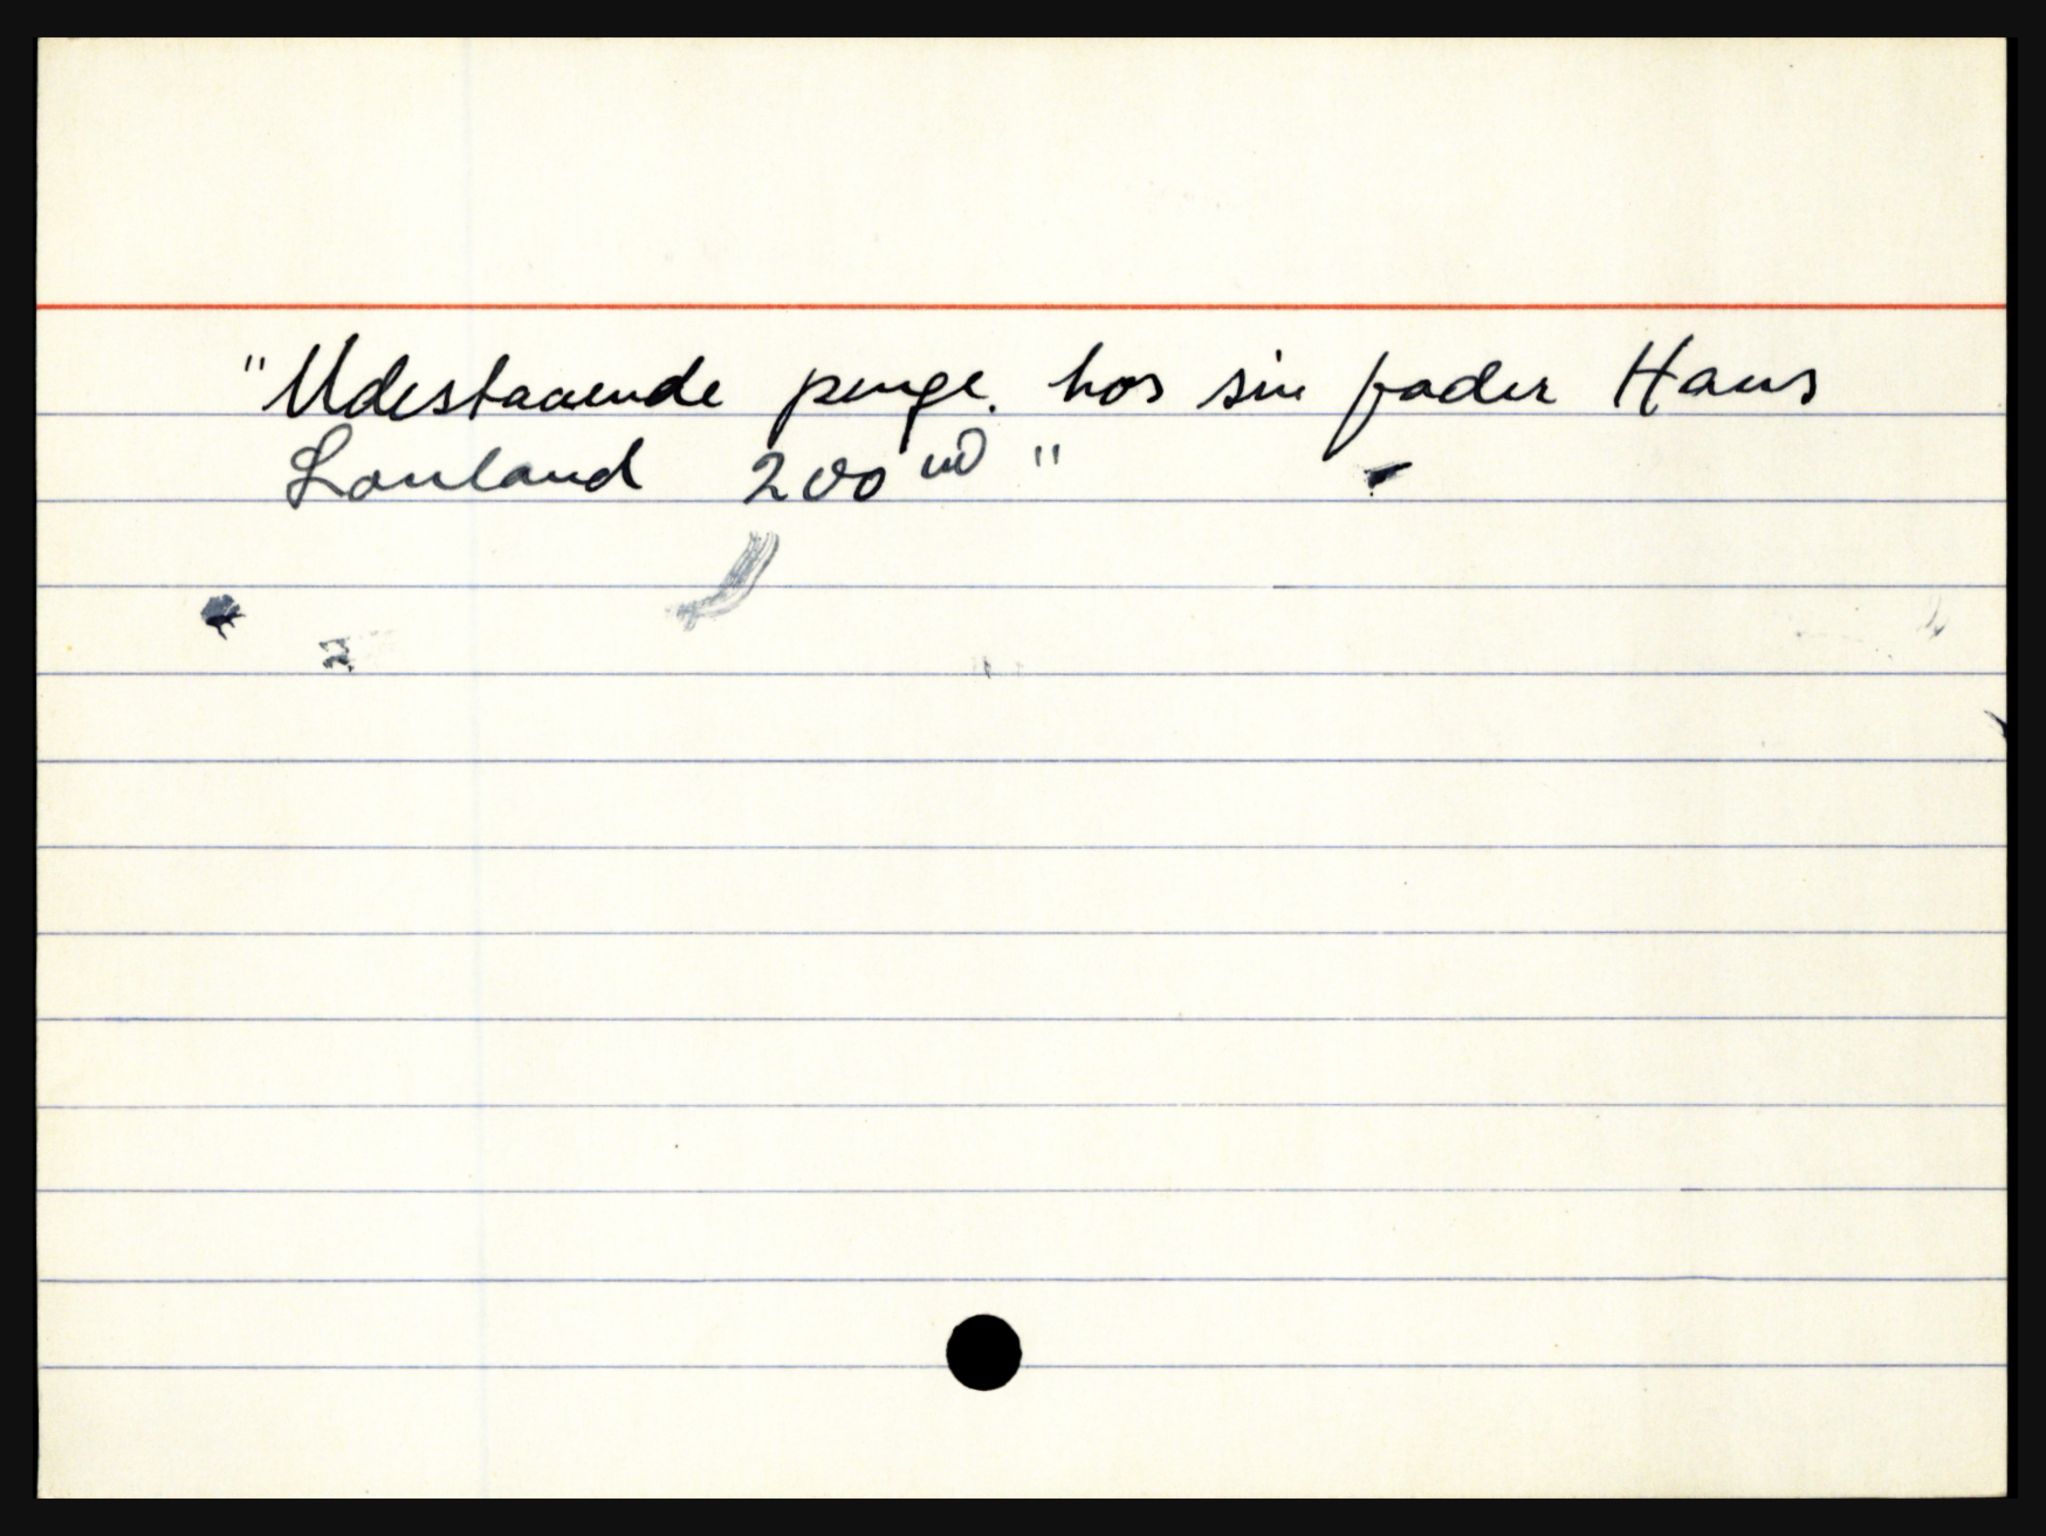 "Udestaaende penge. hos sin fader Hans
Lauland 200 rd"